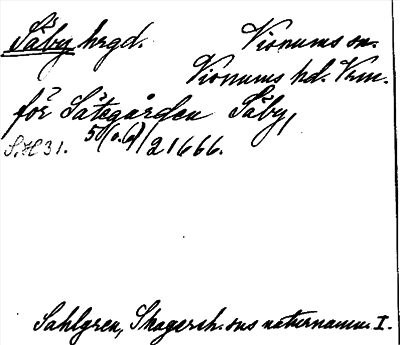 Säby hrgd. Visnums sn.
Visnums hd. Vrm.
för Sätegården Säby,
S.H31. 50(o.6)/2 1666.
Sahlgren, Skagersh. sns naturnamn I.